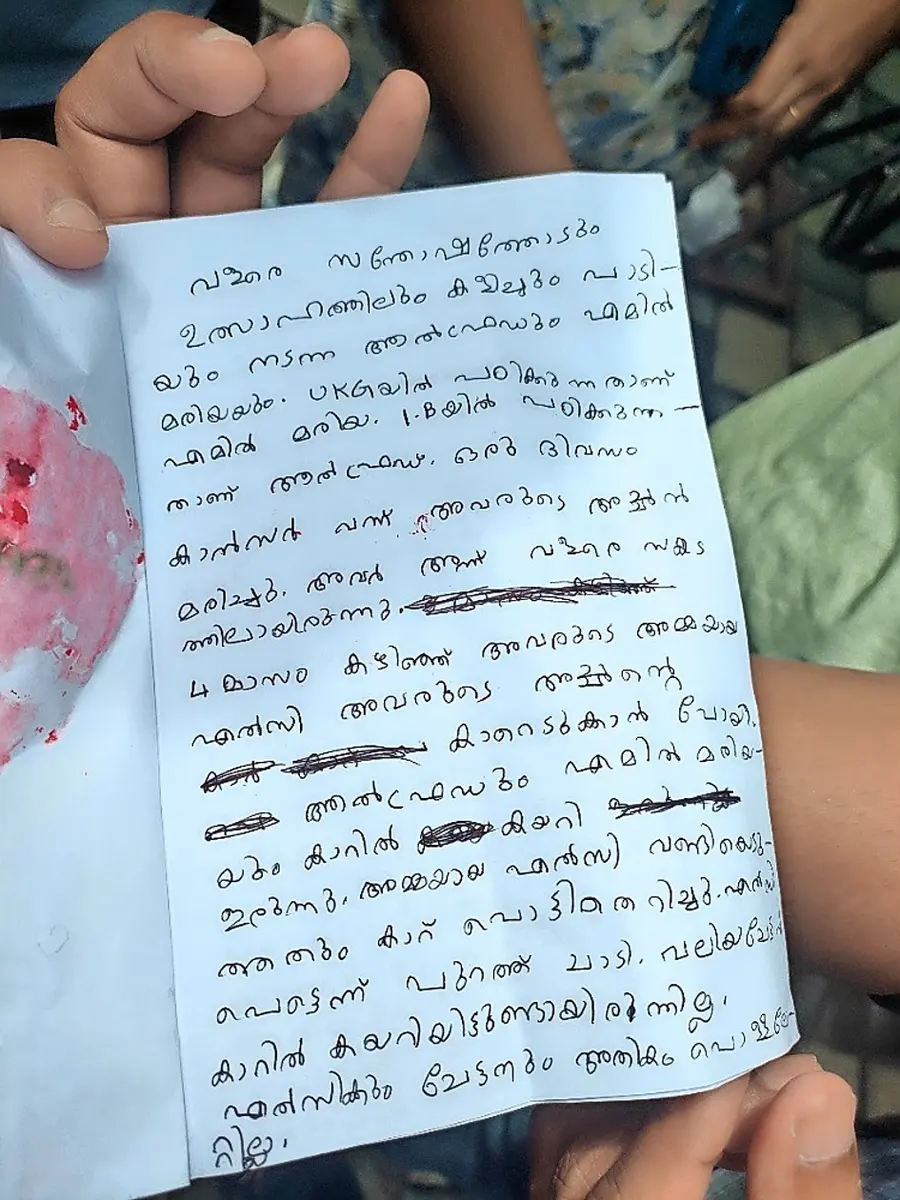 വളരെ സന്തോഷത്തോടും
ഉത്സാഹത്തിലും കളിച്ചും പാടി-
യും നടന്ന ആൽഫ്രഡും എമിൽ
മരിയയും. UKGയിൽ പഠിക്കുന്നതാണ്
എമിൽ മരിയ. 1.Bയിൽ പഠിക്കുന്ന-
താണ് ആൽഫ്രഡ്. ഒരു ദിവസം
കാൻസർ വന്ന് അവരുടെ അച്ഛൻ
മരിച്ചു. അവർ അന്ന് വളരെ സങ്കട
ത്തിലായിരുന്നു.
4 മാസം കഴിഞ്ഞ് അവരുടെ അമ്മയായ
എൽസി അവരുടെ അച്ഛന്റെ
കാറെടുക്കാൻ പോയി.
ആൽഫ്രഡും എമിൽ മരിയ-
യും കാറിൽ കയറി
ഇരുന്നു. അമ്മയായ എൽസി വണ്ടിയെടു-
ത്തതും കാറ് പൊട്ടിതെറിച്ചു. എൽസി
പെട്ടെന്ന് പുറത്ത് ചാടി. വലിയ
കാറിൽ കയറിയിട്ടുണ്ടായിരുന്നില്ല.
എൽസികും ചേട്ടനും അതികം പൊള്ളലേ-
റ്റില്ല.